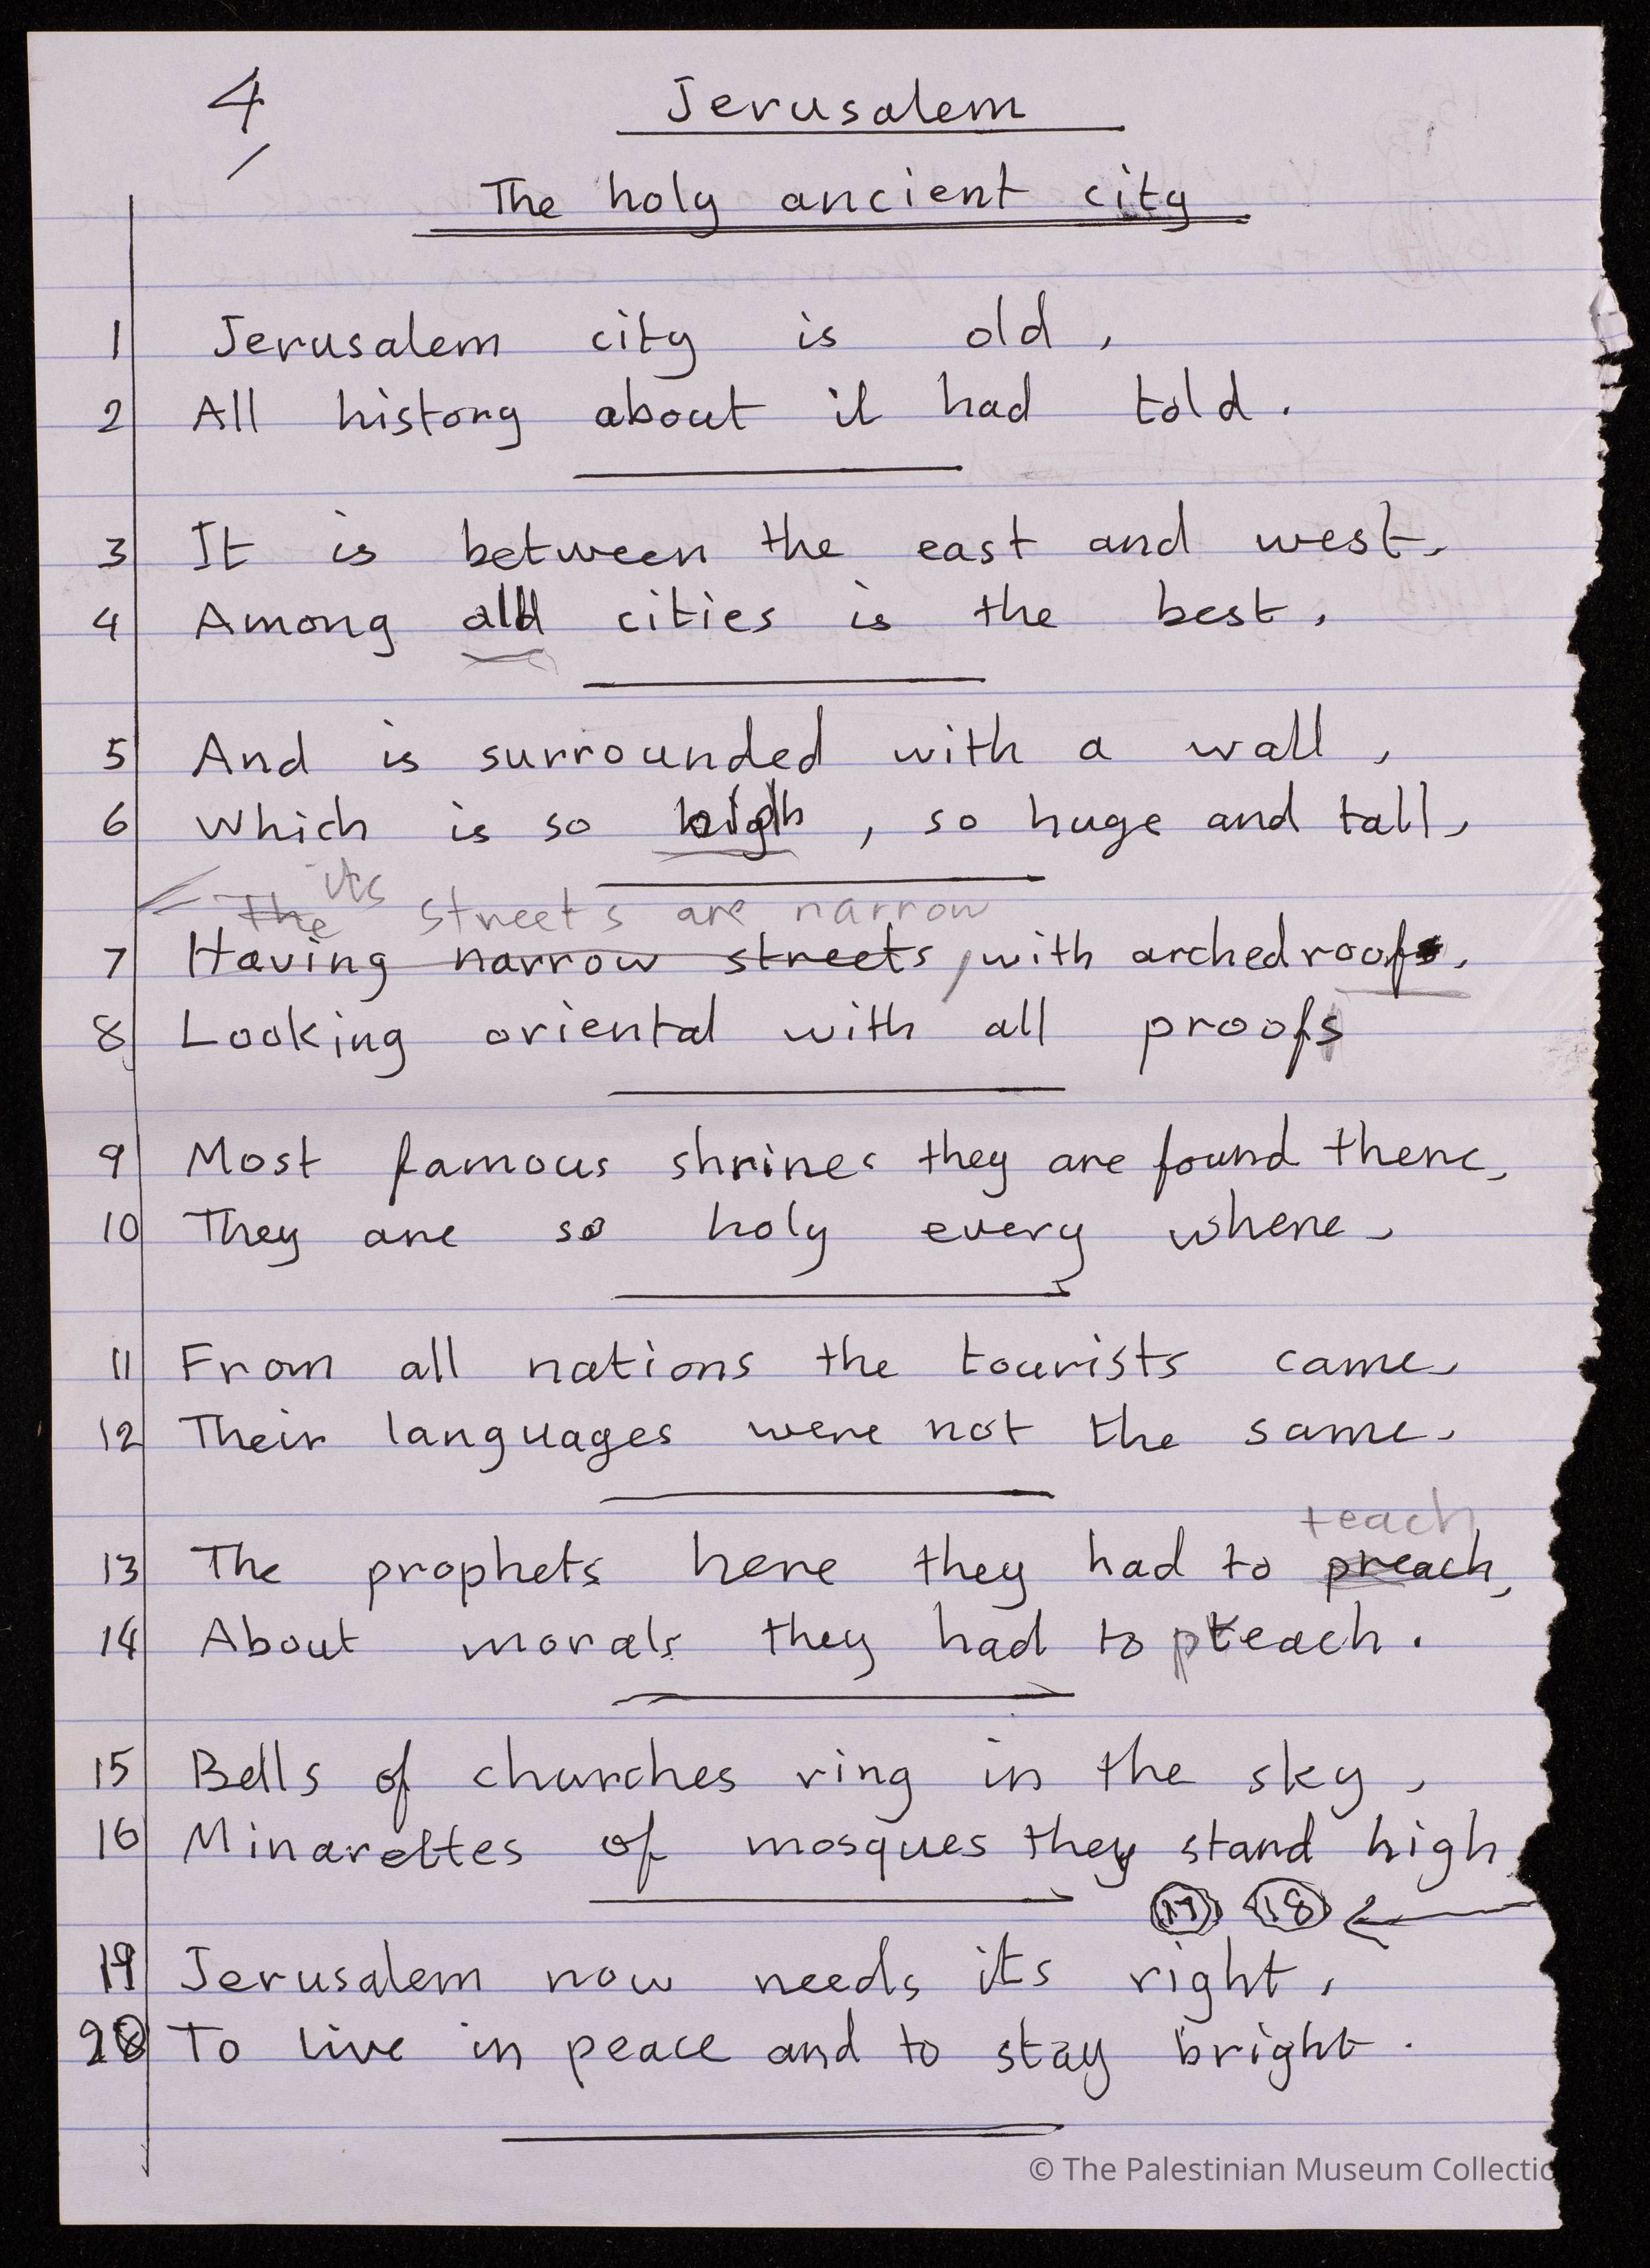 4
Jerusalem
The holy ancient city
1 Jerusalem city is old,
2 All history about it had told.
3 It is between the east and west,
4 Among all cities is the best,
5 And is surrounded with a wall,
6 Which is so high, so huge and tall,
its
The streets are narrow
7 Having narrow streets, with arched roofs,
8 Looking oriental with all proofs
9 Most famous shrines they are found there,
10 They are so holy every where,
11 From all nations the tourists came,
12 Their languages were not the same.
teach
13 The prophets here they had to preach,
14 About morals they had to preach.
15 Bells of churches ring in the sky,
16 Minarettes of mosques they stand high
17 18
19 Jerusalem now needs its right,
20 To live in peace and to stay bright.
© The Palestinian Museum Collectio